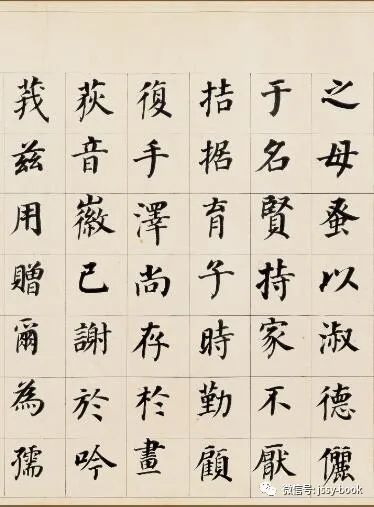 之母蚤以淑德儷
于名賢持家不厭
拮据育子時勤顧
復手澤尚存於畫
荻音徽已謝於吟
莪茲用贈爾為孺
微信号: jssy-book